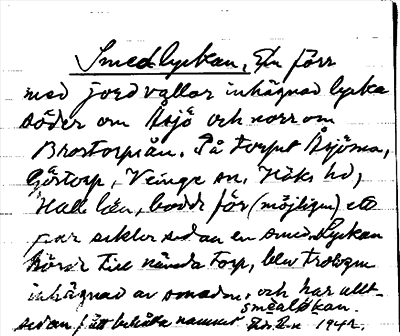 Smedlyckan, En förr
med jordvallar inhägnad lycka
söder om Åsjö och norr om
Brostorpsån. På torpet Åsjöma,
Göstorp, Veinge sn. Höks hd,
Hall. län, bodde för (möjligen) ett
par sekler sedan en smed. Lyckan
hörar till nämda torp, blev troligen
inhägnad av smeden, och har allt-
sedan fått behålla namnet smeälökan.
1942.